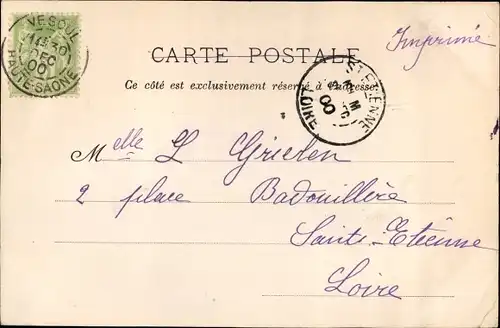 VESOUL
11 30
DEC
00
HAUTE-SAONE
Imprimé
CARTE POSTALE
Ce côté est exclusivement réservé à l'adresse
ST ETIENNE
00
LOIRE
Melle L
2 place Badouillère
Sainte-Etienne
Loire